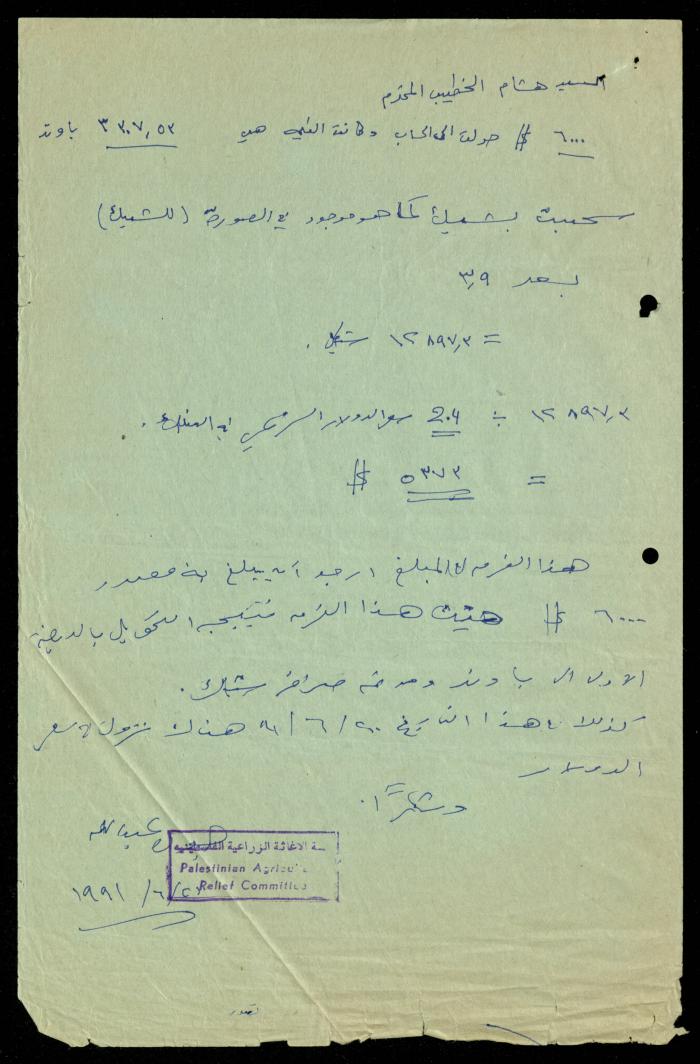 السيد هشام الخطيب المحترم
٦٠٠٠ $ حولت الى الحساب وكانت القيمة هي ٣٣٠٧,٥٣ باوند
سحبت بشيك كما هو موجود في الصورة (للشيك)
بسعر ٣,٩
= ١٢٨٩٧,٣ شيكل .
١٢٨٩٧,٣ ÷ 2.4 سعر الدولار الرسمي في البنك .
= ٥٣٧٣ $
هذا الفرق المبلغ ارجو ان يبلغ به مصدر
٦٠٠٠ $ حيث هذا الفرق نتيجة التحويل بالدرجة
الاولى الى باوند ومن ثم صرافة شيك .
كذلك هذا التاريخ ٢٠/٦/٩١ هناك نزول في سعر
الدولار
وشكراً .
عبدالله
الاغاثة الزراعية الفلسطينية
Palestinian Agricul
Relief Committee
/٦/ ١٩٩١